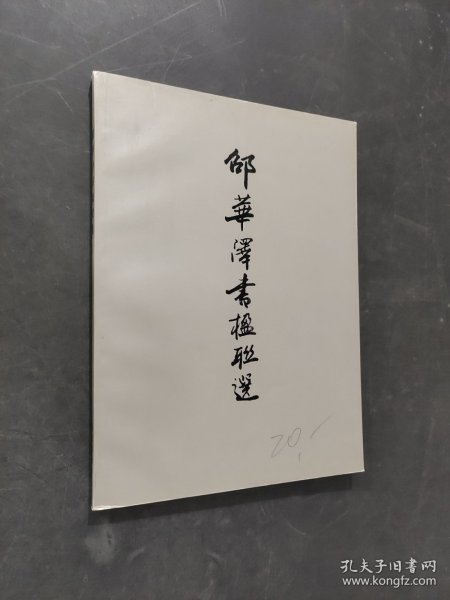 邵華澤書楹聯選
20,-
孔夫子旧书网
www.kongfz.com